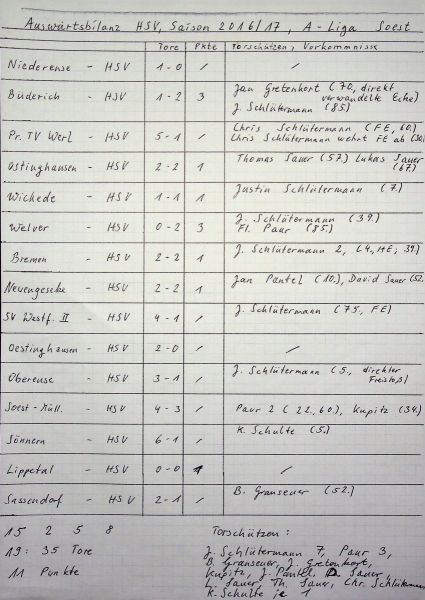 Auswärtsbilanz HSV, Saison 2016/17, A-Liga Soest
Tore Pkte Torschützen, Vorkommnisse
Niederense - HSV 1-0 /
Büderich - HSV 1-2 3 Jan Gretenkort (70., direkt
verwandelte Ecke)
J. Schlütermann (85.)
Pr. TV Werl - HSV 5-1 / Chris Schlütermann (FE, 60.)
Chris Schlütermann wehrt FE ab
Ostinghausen - HSV 2-2 1 Thomas Sauer (57.) Lukas Sauer
(67.)
Wickede - HSV 1-1 1 Justin Schlütermann (7.)
Welver - HSV 0-2 3 J. Schlütermann (39.)
Fl. Paur (85.)
Bremen - HSV 2-2 1 J. Schlütermann 2, (4., HE; 39.)
Neuengeseke - HSV 2-2 1 Jan Pantel (10.), David Sauer (52.
SV Westf. II - HSV 4-1 / J. Schlütermann (75., FE)
Oestinghausen - HSV 2-0 / /
Oberense - HSV 3-1 / J. Schlütermann (5., direkter
Freistoß)
Soest-Müll. - HSV 4-3 / Paur 2 (22., 60.), Kupitz (34.)
Sönnern - HSV 6-1 / K. Schulte (5.)
Lippetal - HSV 0-0 1 /
Sassendorf - HSV 2-1 / B. Granseuer (52.)
15 2 5 8
19:35 Tore
11 Punkte
Torschützen:
J. Schlütermann 7, Paur 3,
B. Granseuer, J. Gretenkort,
Kupitz, J. Pantel, D. Sauer,
L. Sauer, Th. Sauer, Chr. Schlütermann
K. Schulte je 1